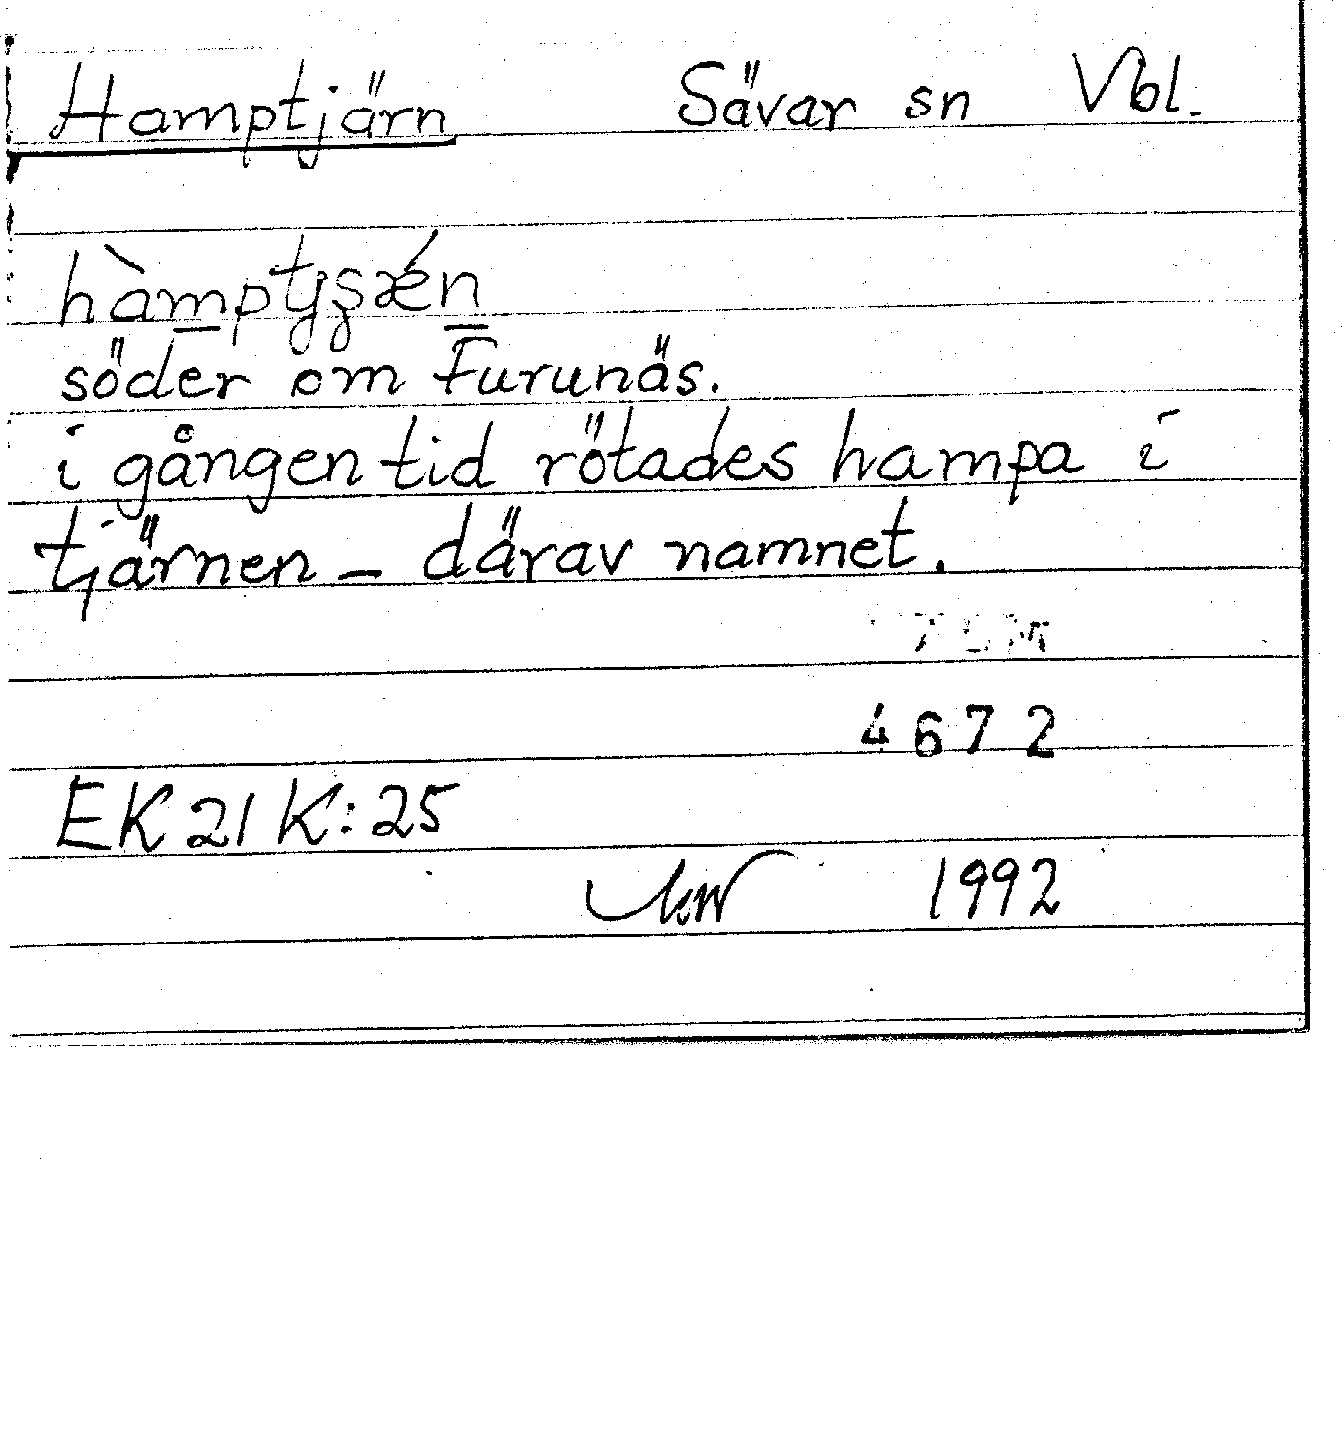 Hamptjärn Sävar sn Vbl.
söder om Furunäs.
i gången tid rötades hampa i
tjärnen – därav namnet.
4672
EK 21 K:25
1992